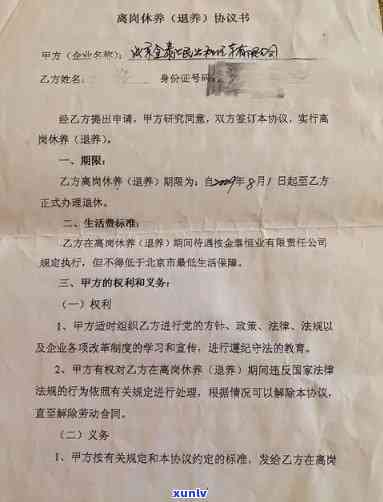 离岗休养（退养）协议书
甲方（企业名称）：北京金泰
有限公司
乙方姓名： 身份证号码
经乙方提出申请，甲方研究同意，双方签订本协议，实行离
岗休养（退养）。
一、期限：
乙方离岗休养（退养）期限为：自2009年8月1日起至乙方
正式办理退休。
二、生活费标准：
乙方在离岗休养（退养）期间待遇按金泰恒业有限责任公司
规定执行，但不得低于北京市最低生活保障。
三、甲方的权利和义务：
（一）权利
1、甲方适时组织乙方进行党的方针、政策、法律、法规以
及企业各项改革制度的学习和宣传，进行遵纪守法的教育。
2、甲方有权对乙方在离岗休养（退养）期间违反国家法律
法规的行为依照有关规定进行处理，根据情况可以解除本协议，
直至解除劳动合同。
（二）义务
1、甲方按有关规定和本协议约定的标准，发给乙方在离岗
xunlv